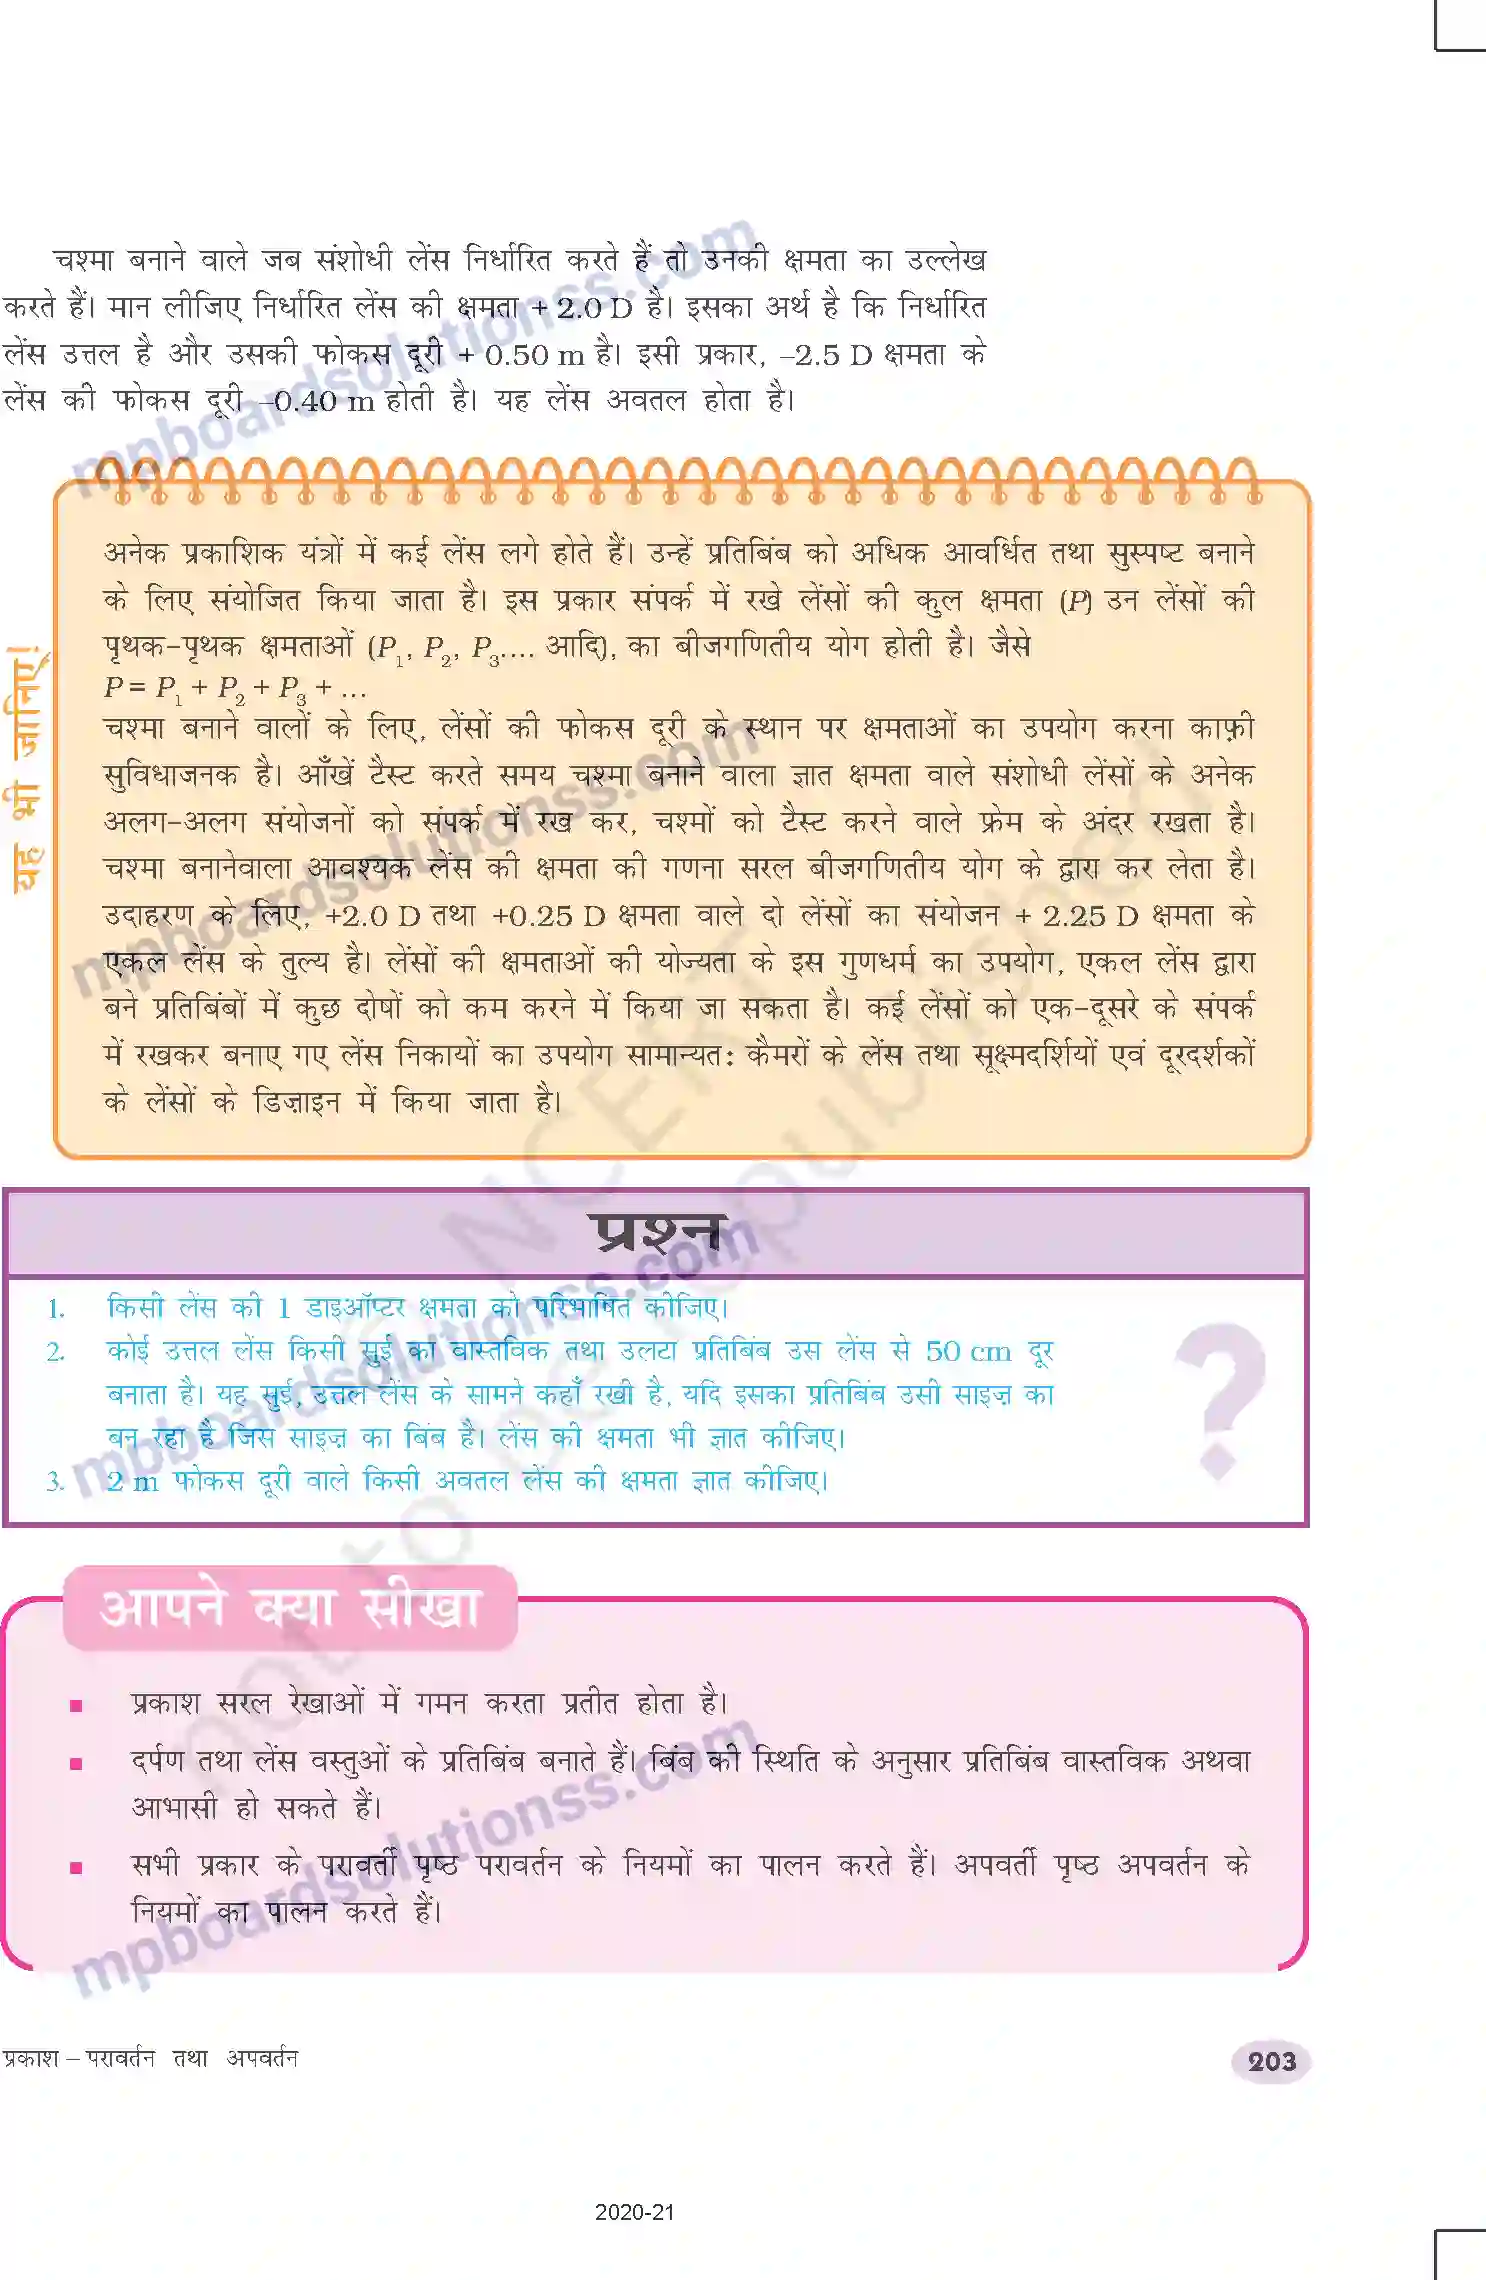 चश्मा बनाने वाले जब संशोधी लेंस निर्धारित करते हैं तो उनकी क्षमता का उल्लेख
करते हैं। मान लीजिए निर्धारित लेंस की क्षमता + 2.0 D है। इसका अर्थ है कि निर्धारित
लेंस उत्तल है और उसकी फोकस दूरी + 0.50 m है। इसी प्रकार, –2.5 D क्षमता के
लेंस की फोकस दूरी –0.40 m होती है। यह लेंस अवतल होता है।
यह भी जानिए!
अनेक प्रकाशिक यंत्रों में कई लेंस लगे होते हैं। उन्हें प्रतिबिंब को अधिक आवर्धित तथा सुस्पष्ट बनाने
के लिए संयोजित किया जाता है। इस प्रकार संपर्क में रखे लेंसों की कुल क्षमता (P) उन लेंसों की
पृथक-पृथक क्षमताओं (P1, P2, P3.... आदि), का बीजगणितीय योग होती है। जैसे
P = P1 + P2 + P3 + ...
चश्मा बनाने वालों के लिए, लेंसों की फोकस दूरी के स्थान पर क्षमताओं का उपयोग करना काफ़ी
सुविधाजनक है। आँखें टैस्ट करते समय चश्मा बनाने वाला ज्ञात क्षमता वाले संशोधी लेंसों के अनेक
अलग-अलग संयोजनों को संपर्क में रख कर, चश्मों को टैस्ट करने वाले फ्रेम के अंदर रखता है।
चश्मा बनानेवाला आवश्यक लेंस की क्षमता की गणना सरल बीजगणितीय योग के द्वारा कर लेता है।
उदाहरण के लिए, +2.0 D तथा +0.25 D क्षमता वाले दो लेंसों का संयोजन + 2.25 D क्षमता के
एकल लेंस के तुल्य है। लेंसों की क्षमताओं की योज्यता के इस गुणधर्म का उपयोग, एकल लेंस द्वारा
बने प्रतिबिंबों में कुछ दोषों को कम करने में किया जा सकता है। कई लेंसों को एक-दूसरे के संपर्क
में रखकर बनाए गए लेंस निकायों का उपयोग सामान्यतः कैमरों के लेंस तथा सूक्ष्मदर्शियों एवं दूरदर्शकों
के लेंसों के डिज़ाइन में किया जाता है।
प्रश्न
1. किसी लेंस की 1 डाइऑप्टर क्षमता को परिभाषित कीजिए।
2. कोई उत्तल लेंस किसी सुई का वास्तविक तथा उलटा प्रतिबिंब उस लेंस से 50 cm दूर
बनाता है। यह सुई, उत्तल लेंस के सामने कहाँ रखी है, यदि इसका प्रतिबिंब उसी साइज़ का
बन रहा है जिस साइज़ का बिंब है। लेंस की क्षमता भी ज्ञात कीजिए।
3. 2 m फोकस दूरी वाले किसी अवतल लेंस की क्षमता ज्ञात कीजिए।
?
आपने क्या सीखा
■ प्रकाश सरल रेखाओं में गमन करता प्रतीत होता है।
■ दर्पण तथा लेंस वस्तुओं के प्रतिबिंब बनाते हैं। बिंब की स्थिति के अनुसार प्रतिबिंब वास्तविक अथवा
आभासी हो सकते हैं।
■ सभी प्रकार के परावर्ती पृष्ठ परावर्तन के नियमों का पालन करते हैं। अपवर्ती पृष्ठ अपवर्तन के
नियमों का पालन करते हैं।
प्रकाश – परावर्तन तथा अपवर्तन
203
2020-21
mpboardsolutionss.com
mpboardsolutionss.com
mpboardsolutionss.com
mpboardsolutionss.com
© NCERT
not to be republished